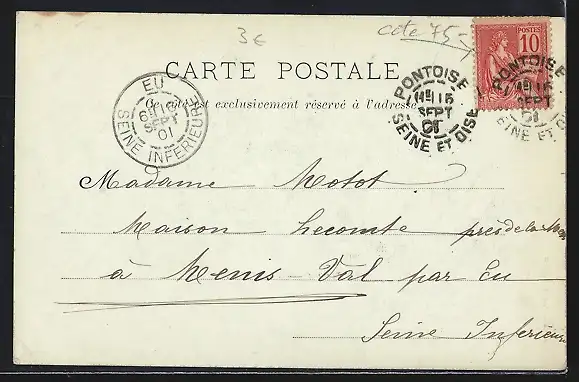 3€
cote 75-
POSTES
10
CARTE POSTALE
Ce côté est exclusivement réservé à l'adresse
EU
SEPT
01
SEINE INFERIEURE
PONTOISE
15
SEPT
01
SEINE ET OISE
PONTOISE
15
SEPT
01
SEINE ET OISE
Madame Motot
Maison Lecomte près de la
à Menis-Val par Eu
Seine Inferieure